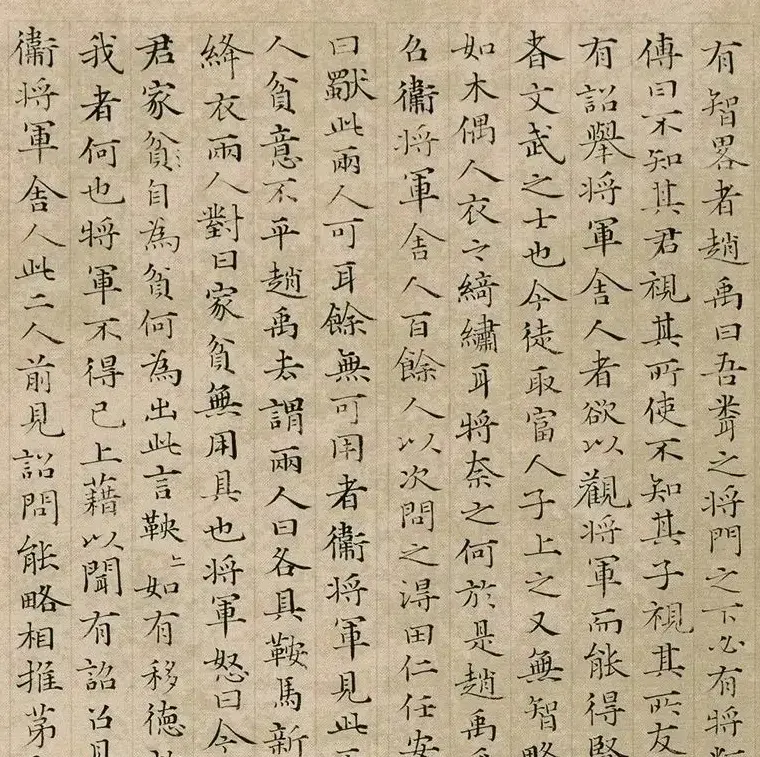 有智畧者趙禹曰吾聞之将門之下必有将
傳曰不知其君視其所使不知其子視其所友
有詔舉将軍舍人者欲以觀将軍而能得賢
者文武之士也今徒取富人子上之又無智略
如木偶人衣之綺繡耳将奈之何於是趙禹
召衛将軍舍人百餘人以次問之得田仁任安
曰獨此兩人可耳餘無可用者衛将軍見此
人貧意不平趙禹去謂兩人曰各具鞍馬新
絳衣兩人對曰家貧無用具也将軍怒曰今
君家貧自為貧何為出此言鞅〻如有移德
我者何也将軍不得已上藉以聞有詔召見
衛将軍舍人此二人前見詔問能略相推第